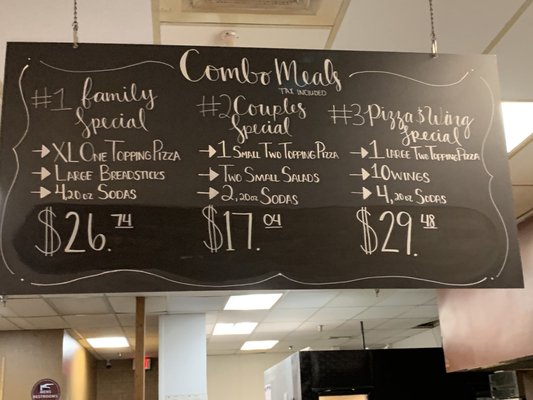 Combo Meals
TAX INCLUDED
#1 family
Special
XL One Topping Pizza
Large Breadsticks
4 20oz Sodas
$26.74
#2 Couples
Special
1 Small Two Topping Pizza
Two Small Salads
2, 20oz Sodas
$17.04
#3 Pizza & Wing
Special
1 Large Two Topping Pizza
10 Wings
4, 20oz Sodas
$29.48
RESTROOMS